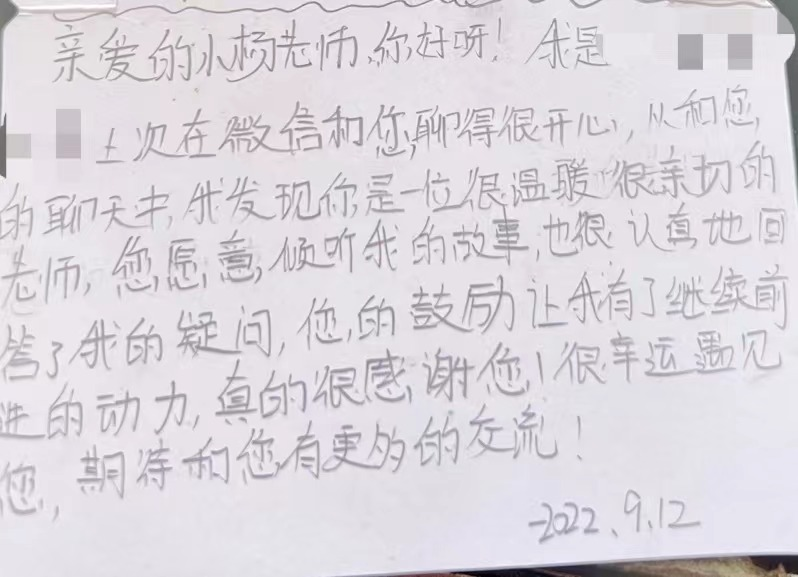 亲爱的小杨老师,你好呀!我是
上次在微信和您聊得很开心,从和您
的聊天中,我发现你是一位很温暖很亲切的
老师,您愿意倾听我的故事,也很认真地回
答了我的疑问,您的鼓励让我有了继续前
进的动力,真的很感谢您!很幸运遇见
您,期待和您有更多的交流!
-2022.9.12